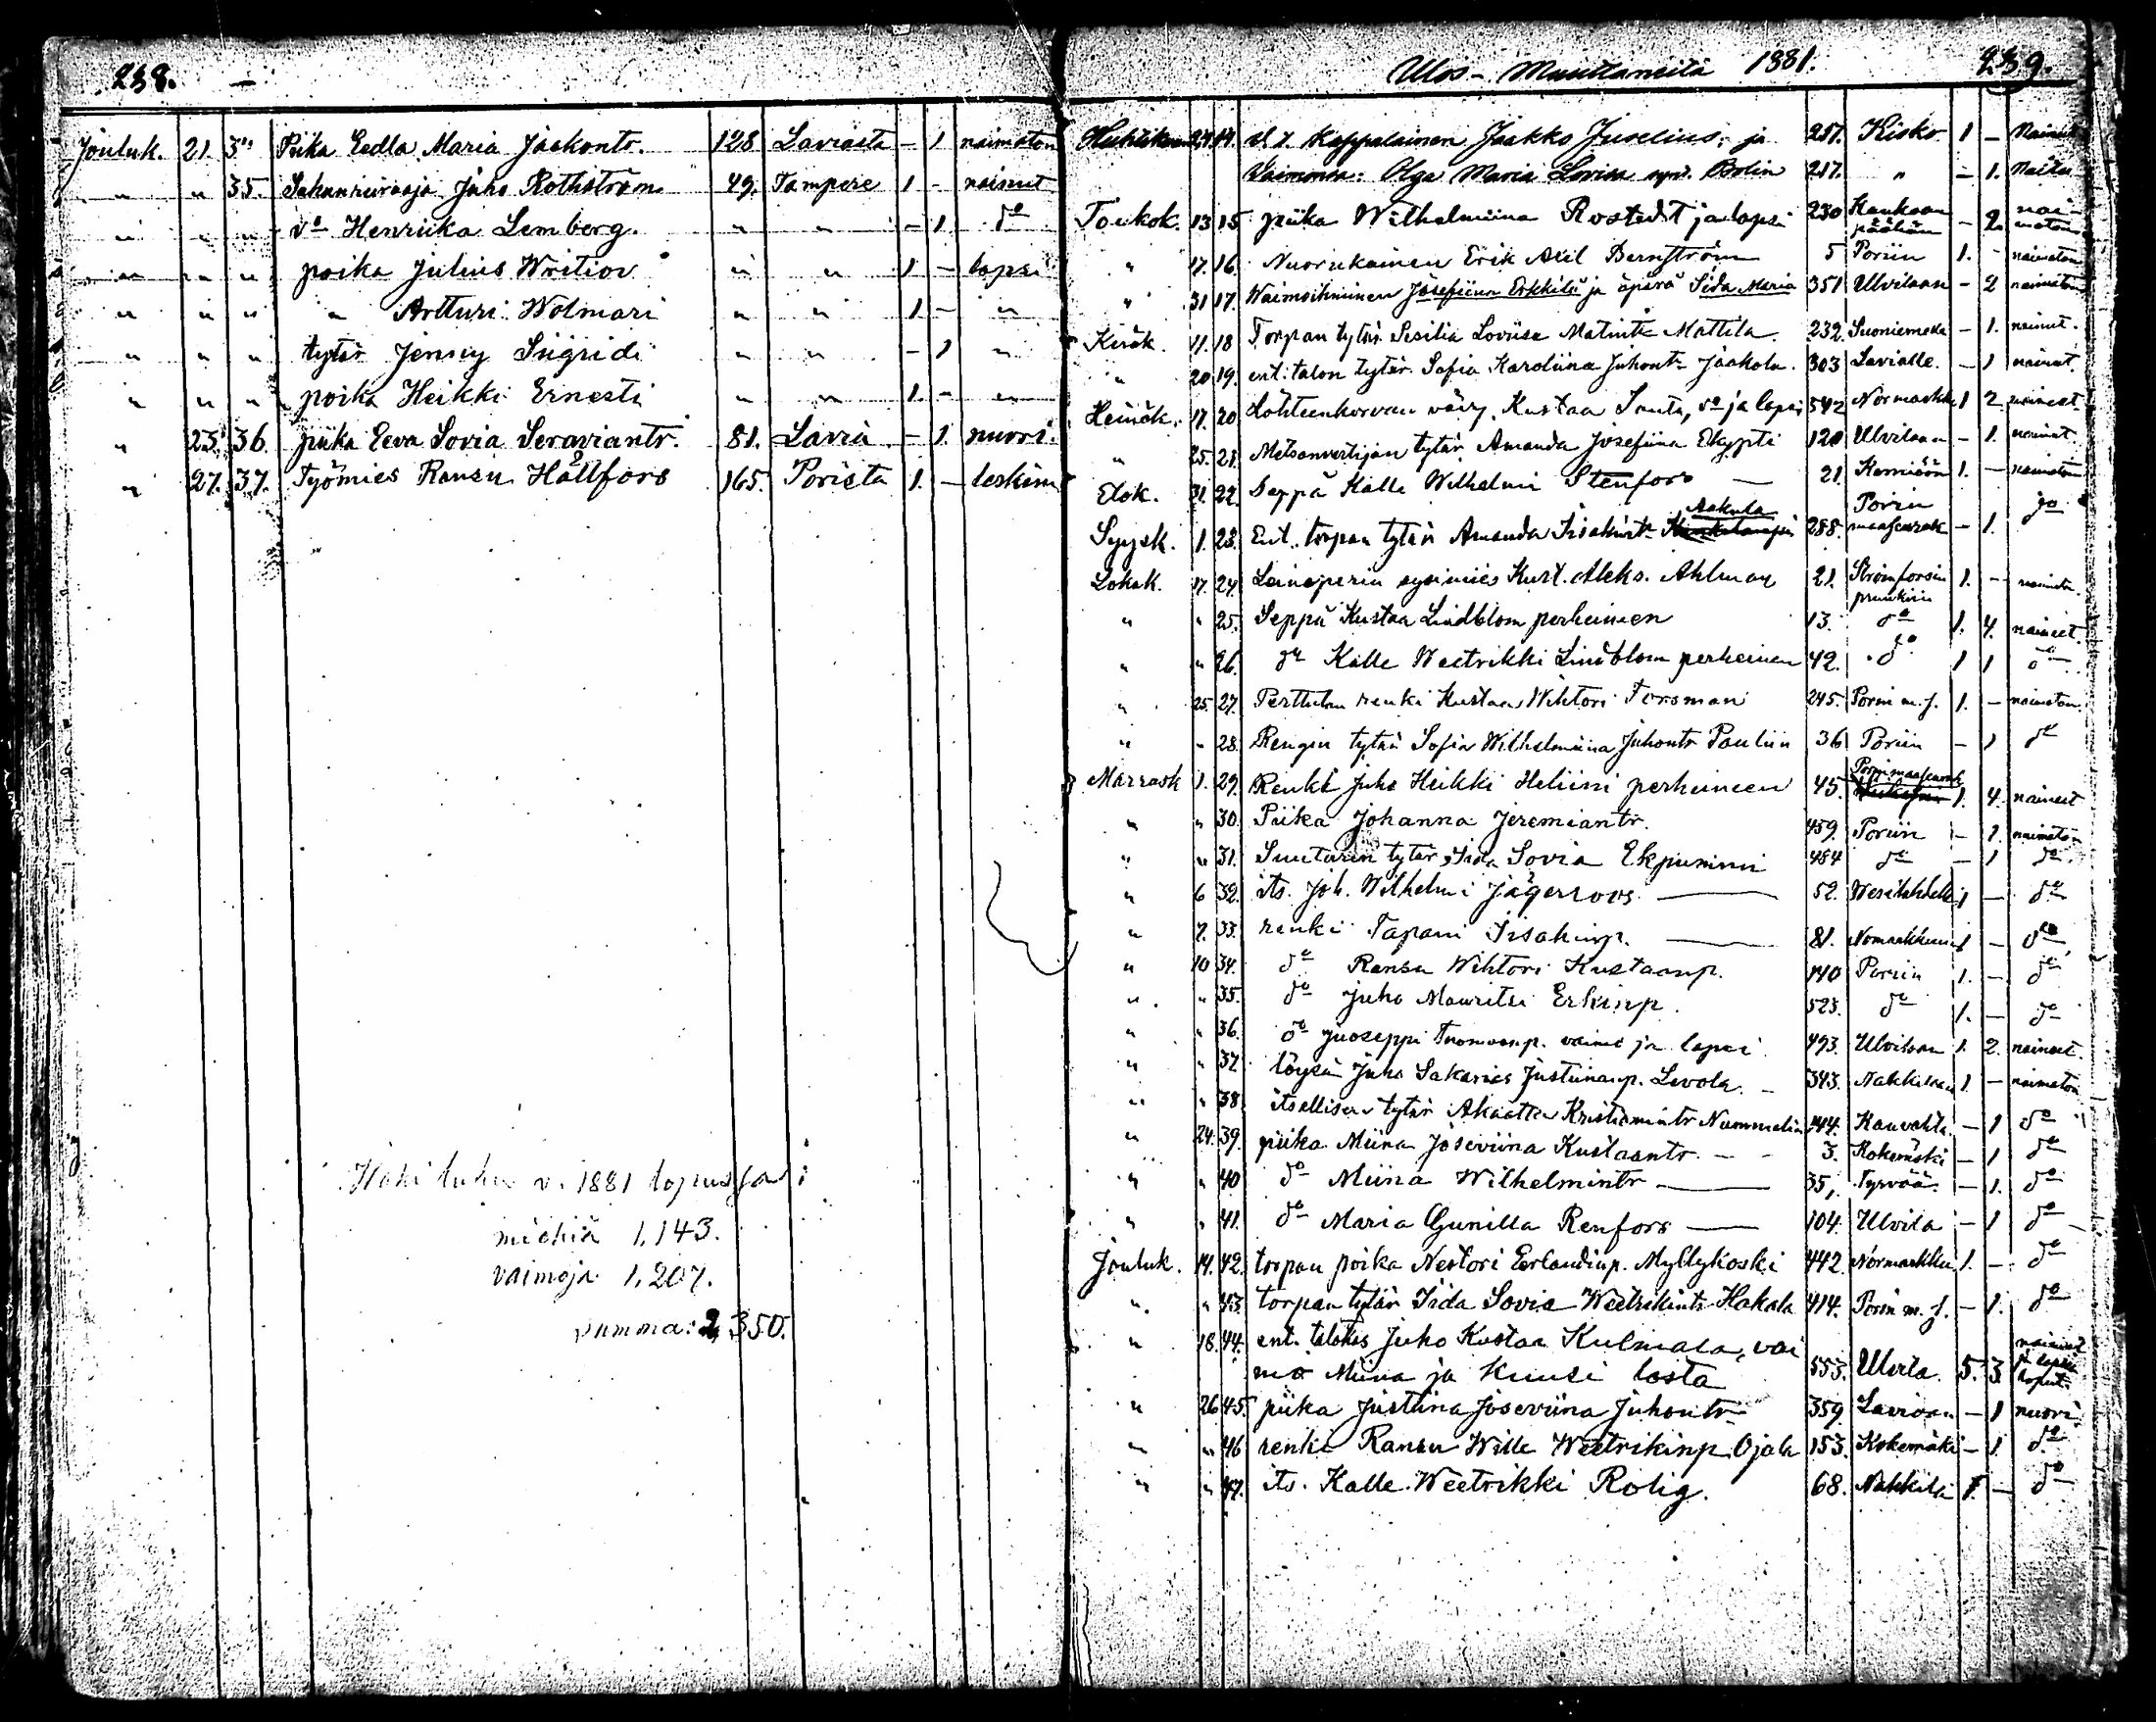 238. -
Jouluk. 21. 3" Piika Eedla Maria Jaakontr. 128 Laviasta - 1 naimaton
" " 35. Juho Rothström 49. Tampere 1 - nainut
" " " vo Henriika Lemberg. " " - 1. do
" " " poika Julius " " 1 - lapsi
" " " " Artturi Wolmari " " 1 - "
" " " tytär Jenny Sigridi " " - 1 "
" " " poika Heikki Ernesti " " 1. - "
" 23. 36. piika Eeva Sovia Seraviantr. 81. Lavia - 1. nuori.
" 27. 37. Työmies Ransu Hållfors 165. Porista 1. - leskim
v. 1881 lopussa:
miehiä 1,143.
vaimoja 1,207.
summa: 2,350.
Ulos-Muuttaneita 1881. 239.
14. Kappalainen Jaakko Juselius, ja 217. Kisko 1 -
Waimonsa: Olga Maria Lovisa synt. Bolin 217. " - 1.
Toukok. 13 15 piika Wilhelmiina Rostedt ja lapsi 230 Kankaanpäähän - 2. naimaton
" 17. 16. Nuorukainen Erik Axil Bernström 5 Poriin 1. - naimaton
" 31 17. Waimoihminen Josefiina Erkkilä ja äpärä Iida Maria 351 Ulvilaan - 2 naimaton
Kesäk. 11. 18 Torpan tytär Sesilia Loviisa Matintr Mattila 232. Suoniemelle - 1. nainut.
" 20. 19. ent. talon tytär Sofia Karoliina Juhontr Jaakola. 303 Lavialle. - 1 nainut.
Heinäk. 17. 20 Lohteenkorvan väv. Kustaa Santa, vo ja lapsi 542 Normarkku 1 2 naineet
" 25. 21. Metsänvartijan tytär Amanda Josefiina Ekypti 120 Ulvilaan - 1. nainut.
Elok. 31. 22. Seppä Kalle Wilhelmi Stenfors - 21. Kemiöön 1. - naimaton
Syysk. 1. 23. Ent. torpan tytär Amanda Iisakintr Aakula 288. Porin maaseurak - 1. do
Lokak. 17. 24. Leineperin sysimies Kust. Aleks. Ahlman 21. Strömforsin pruukiin 1. -
" " 25. Seppä Kustaa Lindblom perheineen 13. do 1. 4. naineet.
" " 26. do Kalle Weetrikki Lindblom perheineen 42. do 1 1 do
" 25. 27. Perttulan renki Kustaa Wihtori Forsman 245. Porin m. s. 1. - naimaton
" " 28. Rengin tytär Sofia Wilhelmiina Juhontr Pauliin 36 Poriin - 1 do
Marrask 1. 29. Renki Juho Heikki Heliini perheineen 45. Porin maaseurak 1. 4. naineet
" " 30. Piika Johanna Jeremiantr. 459. Poriin - 1. naimaton
" " 31. Suutarin tytär Iida Sovia 484 do - 1 do
" 6 32. its. Joh. Wilhelmi Jägerroos. 52. Wesilahdelle 1 - do
" 7. 33. renki Tapani Iisakinp. 81. Nomarkkuun 1 - do
" 10 34. do Ransu Wihtori Kustaanp. 140 Poriin 1. - do
" " 35. do Juho Mauritsi Erkinp. 523. do 1. - do
" " 36. do Juoseppi Tuomaanp. vaimo ja lapsi 493. Ulvilaan 1. 2. naineet.
" " 37. löysä Juho Sakarias Justiinanp. Levola. - 343. Nakkilaan 1. - naimaton
" " 38. itsellisen tytär Akaatta Kristiamintr Nummelin 144. Kauvatta. - 1 do
" 24. 39. piika Miina Joseviina Kustaantr. 3. Kokemäki - 1 do
" " 40 do Miina Wilhelmintr 35,. Tyrvää. - 1. do
" " 41. do Maria Gunilla Renfors 104. Ulvila - 1 do
Jouluk. 14. 42. torpan poika Nestori Eerlandinp. Myllykoski 442. Normarkku 1. - do
" " 43. torpan tytär Iida Sovia Weetrikintr Hakala 414. Porin m. s. - 1. do
" 18. 44. ent. talokas Juho Kustaa Kulmala, vai
mo Miina ja kuusi lasta 553. Ulvila. 5. 3.
" 26 45. piika Justiina Joseviina Juhontr 359 Laviaan - 1 nuori.
" " 46 renki Ransu Wille Weetrikinp Ojala 153. Kokemäki - 1. do
" " 47. its. Kalle Weetrikki Rolig. 68. Nakkila 1. - do